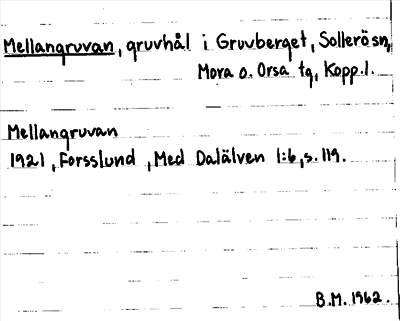 Mellangruvan, gruvhål i Gruvberget, Sollerö sn,
Mora o. Orsa tg, Kopp.l.
Mellangruvan
1921, Forsslund, Med Dalälven 1:6, s. 119.
B.M. 1962.